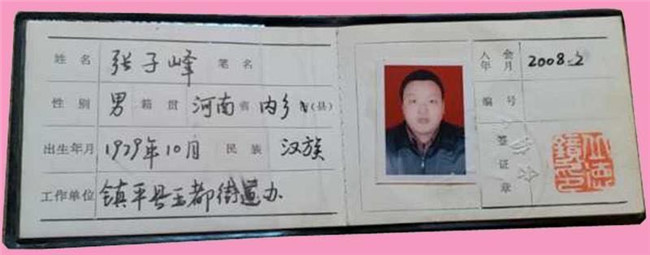 姓名 张子峰 笔名
性别 男 籍贯 河南省 内乡 (县)
出生年月 1979年10月 民族 汉族
工作单位 镇平县玉都街道办
入会年月 2008.2
编号
签证章